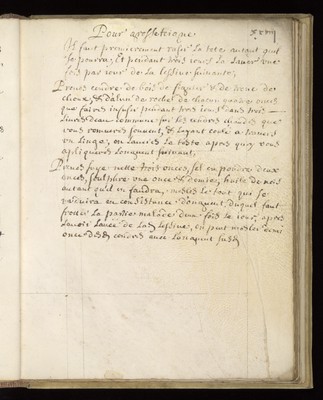 Pour
xxiiij
Il faut premierement raser la teste autant quil
se pourra, et pendant trois jours la laver une
fois par jour de la lessive suivante,
Prenes cendre de bois de figuier & de troue de
choux, & d'alun de roche de chacun quatre onces
que faires infuser pendant trois jours dans trois
livres deau commune sur les cendres chaudes que
vous remuerés souvent, & layant coulé a travers
un linge, en laverés la teste apres quoy vous
apliquerés longuent suivant,
Prenes suye nette trois onces, sel en poudre deux
onces, soulphre une once & demie, huile de noix
autant qu'il en faudra, meslés le tout, qui se
reduira en consistance donguent, duquel faut
frotter la partie malade deux fois le jour, apres
lavoir lavee de lad lessive, on peut mesler demi
once cendres avec longuent susd